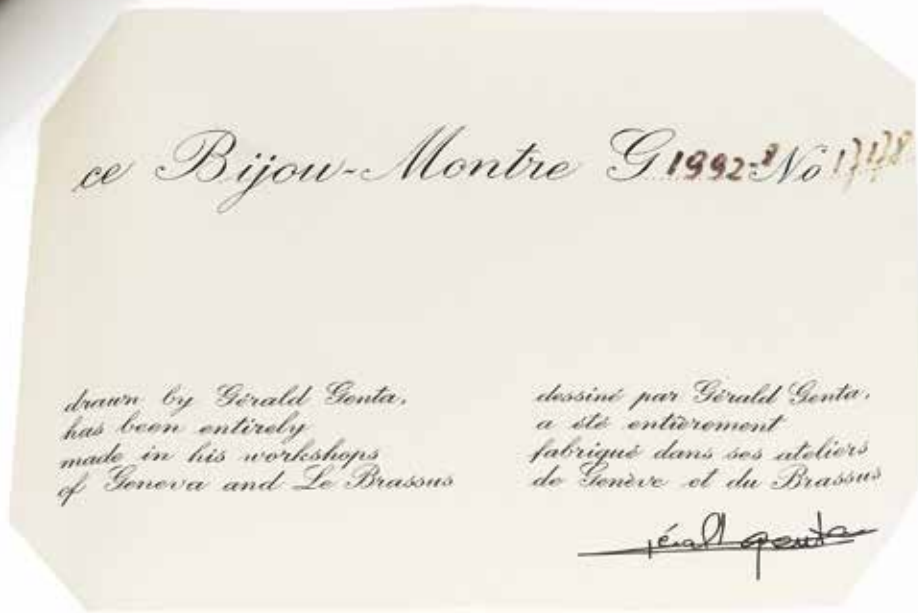 ce Bijou-Montre G 1992-8 No 17178
drawn by Gérald Genta,
has been entirely
made in his workshops
of Geneva and Le Brassus
dessiné par Gérald Genta,
a été entièrement
fabriqué dans ses ateliers
de Genève et du Brassus
gérald genta